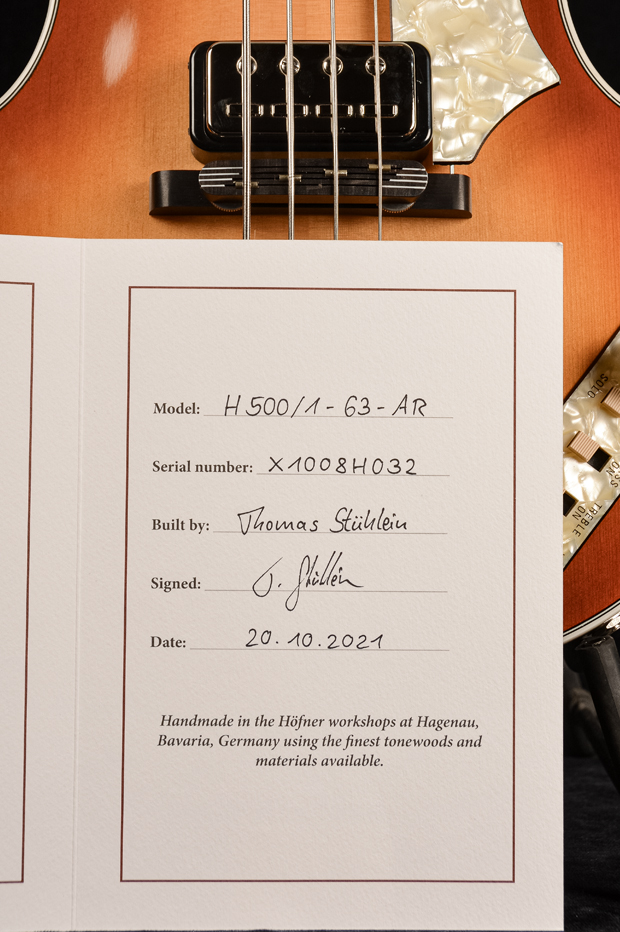 SOLO
BASS
ON
TREBLE
ON
Model: H500/1-63-AR
Serial number: X1008H032
Built by: Thomas Stühlein
Signed: T. Stühlein
Date: 20.10.2021
Handmade in the Höfner workshops at Hagenau,
Bavaria, Germany using the finest tonewoods and
materials available.